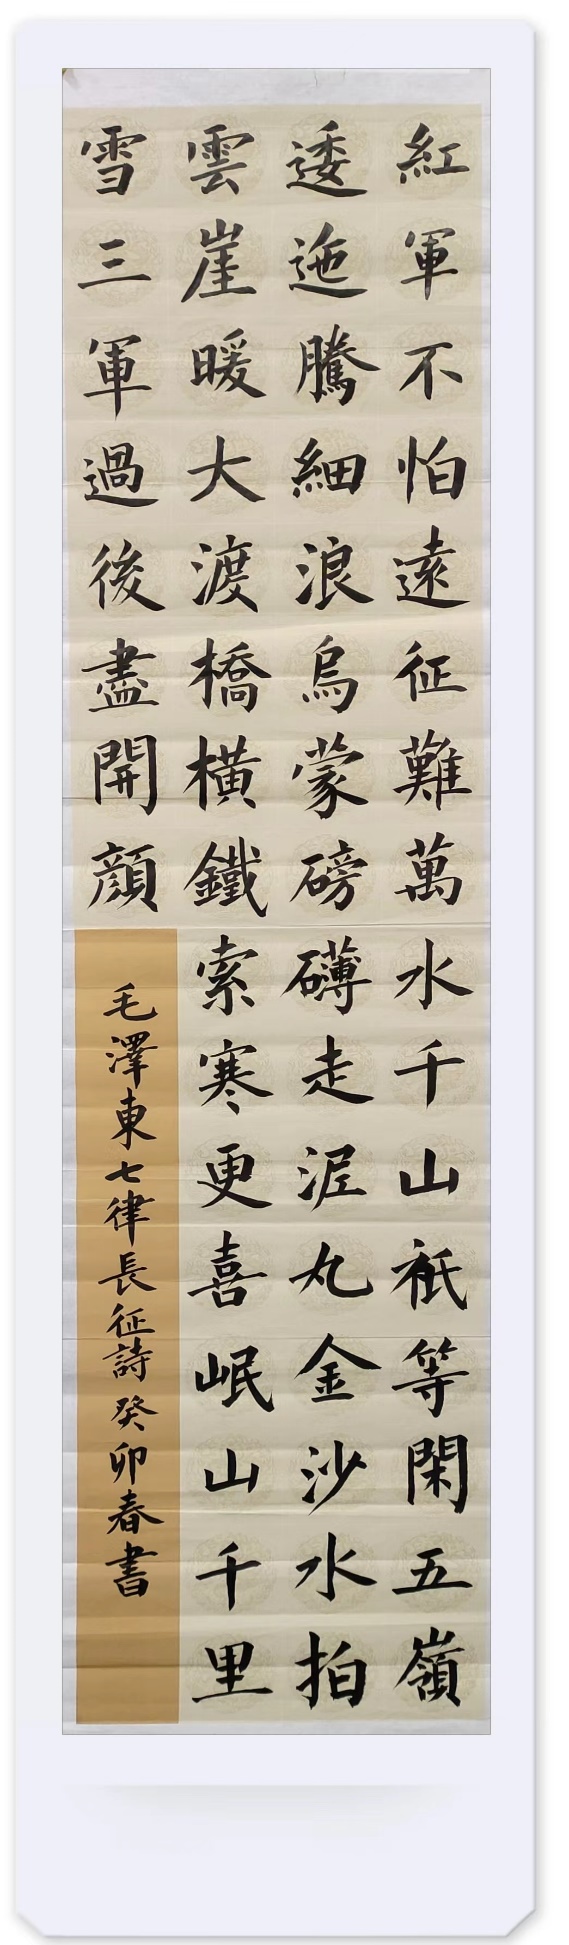 紅軍不怕遠征難萬水千山祗等閑五嶺
逶迤騰細浪烏蒙磅礴走泥丸金沙水拍
雲崖暖大渡橋橫鐵索寒更喜岷山千里
雪三軍過後盡開顏
毛澤東七律長征詩癸卯春書